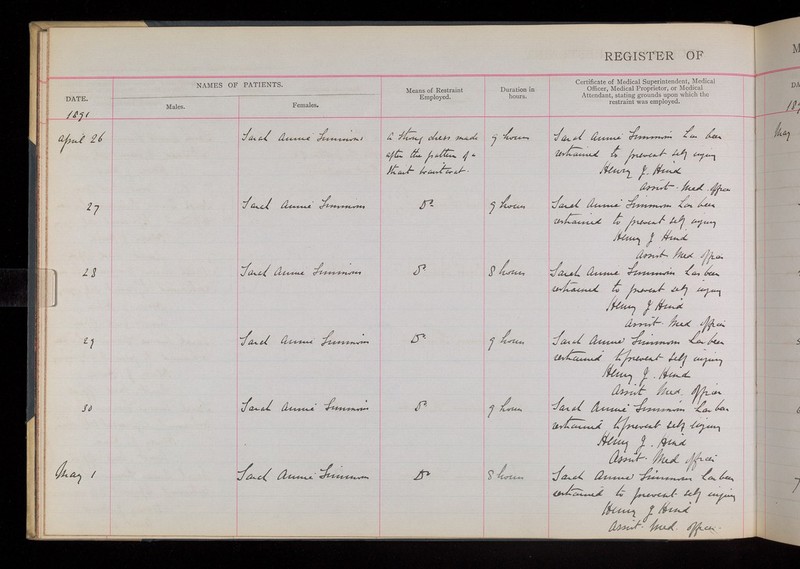 REGISTER OF
DATE.
NAMES OF PATIENTS.
Males.
Females.
Means of Restraint
Employed.
Duration in
hours.
Certificate of Medical Superintendent, Medical
Officer, Medical Proprietor, or Medical
Attendant, stating grounds upon which the
restraint was employed.
1891
April 26
Sarah Annie Simmons
a strong dress made
after the pattern of a
strait waistcoat.
9 hours
Sarah Annie Simmons has been
restrained to prevent self injury
Henry J. Hind
Assist. Med. Officer
27
Sarah Annie Simmons
Do
9 hours
Sarah Annie Simmons has been
restrained to prevent self injury
Henry J Hind
Assist. Med Officer
28
Sarah Annie Simmons
Do
8 hours
Sarah Annie Simmons has been
restrained to prevent self injury
Henry J Hind
Assist Med Officer
29
Sarah Annie Simmons
Do
9 hours
Sarah Annie Simmons has been
restrained to prevent self injury
Henry J. Hind
Assist Med. Officer
30
Sarah Annie Simmons
Do
9 hours
Sarah Annie Simmons has been
restrained to prevent self injury
Henry J. Hind
Assist. Med Officer
May 1
Sarah Annie Simmons
Do
8 hours
Sarah Annie Simmons has been
restrained to prevent self injury
Henry J Hind
Assist. Med. Officer.
M
DA
189
May